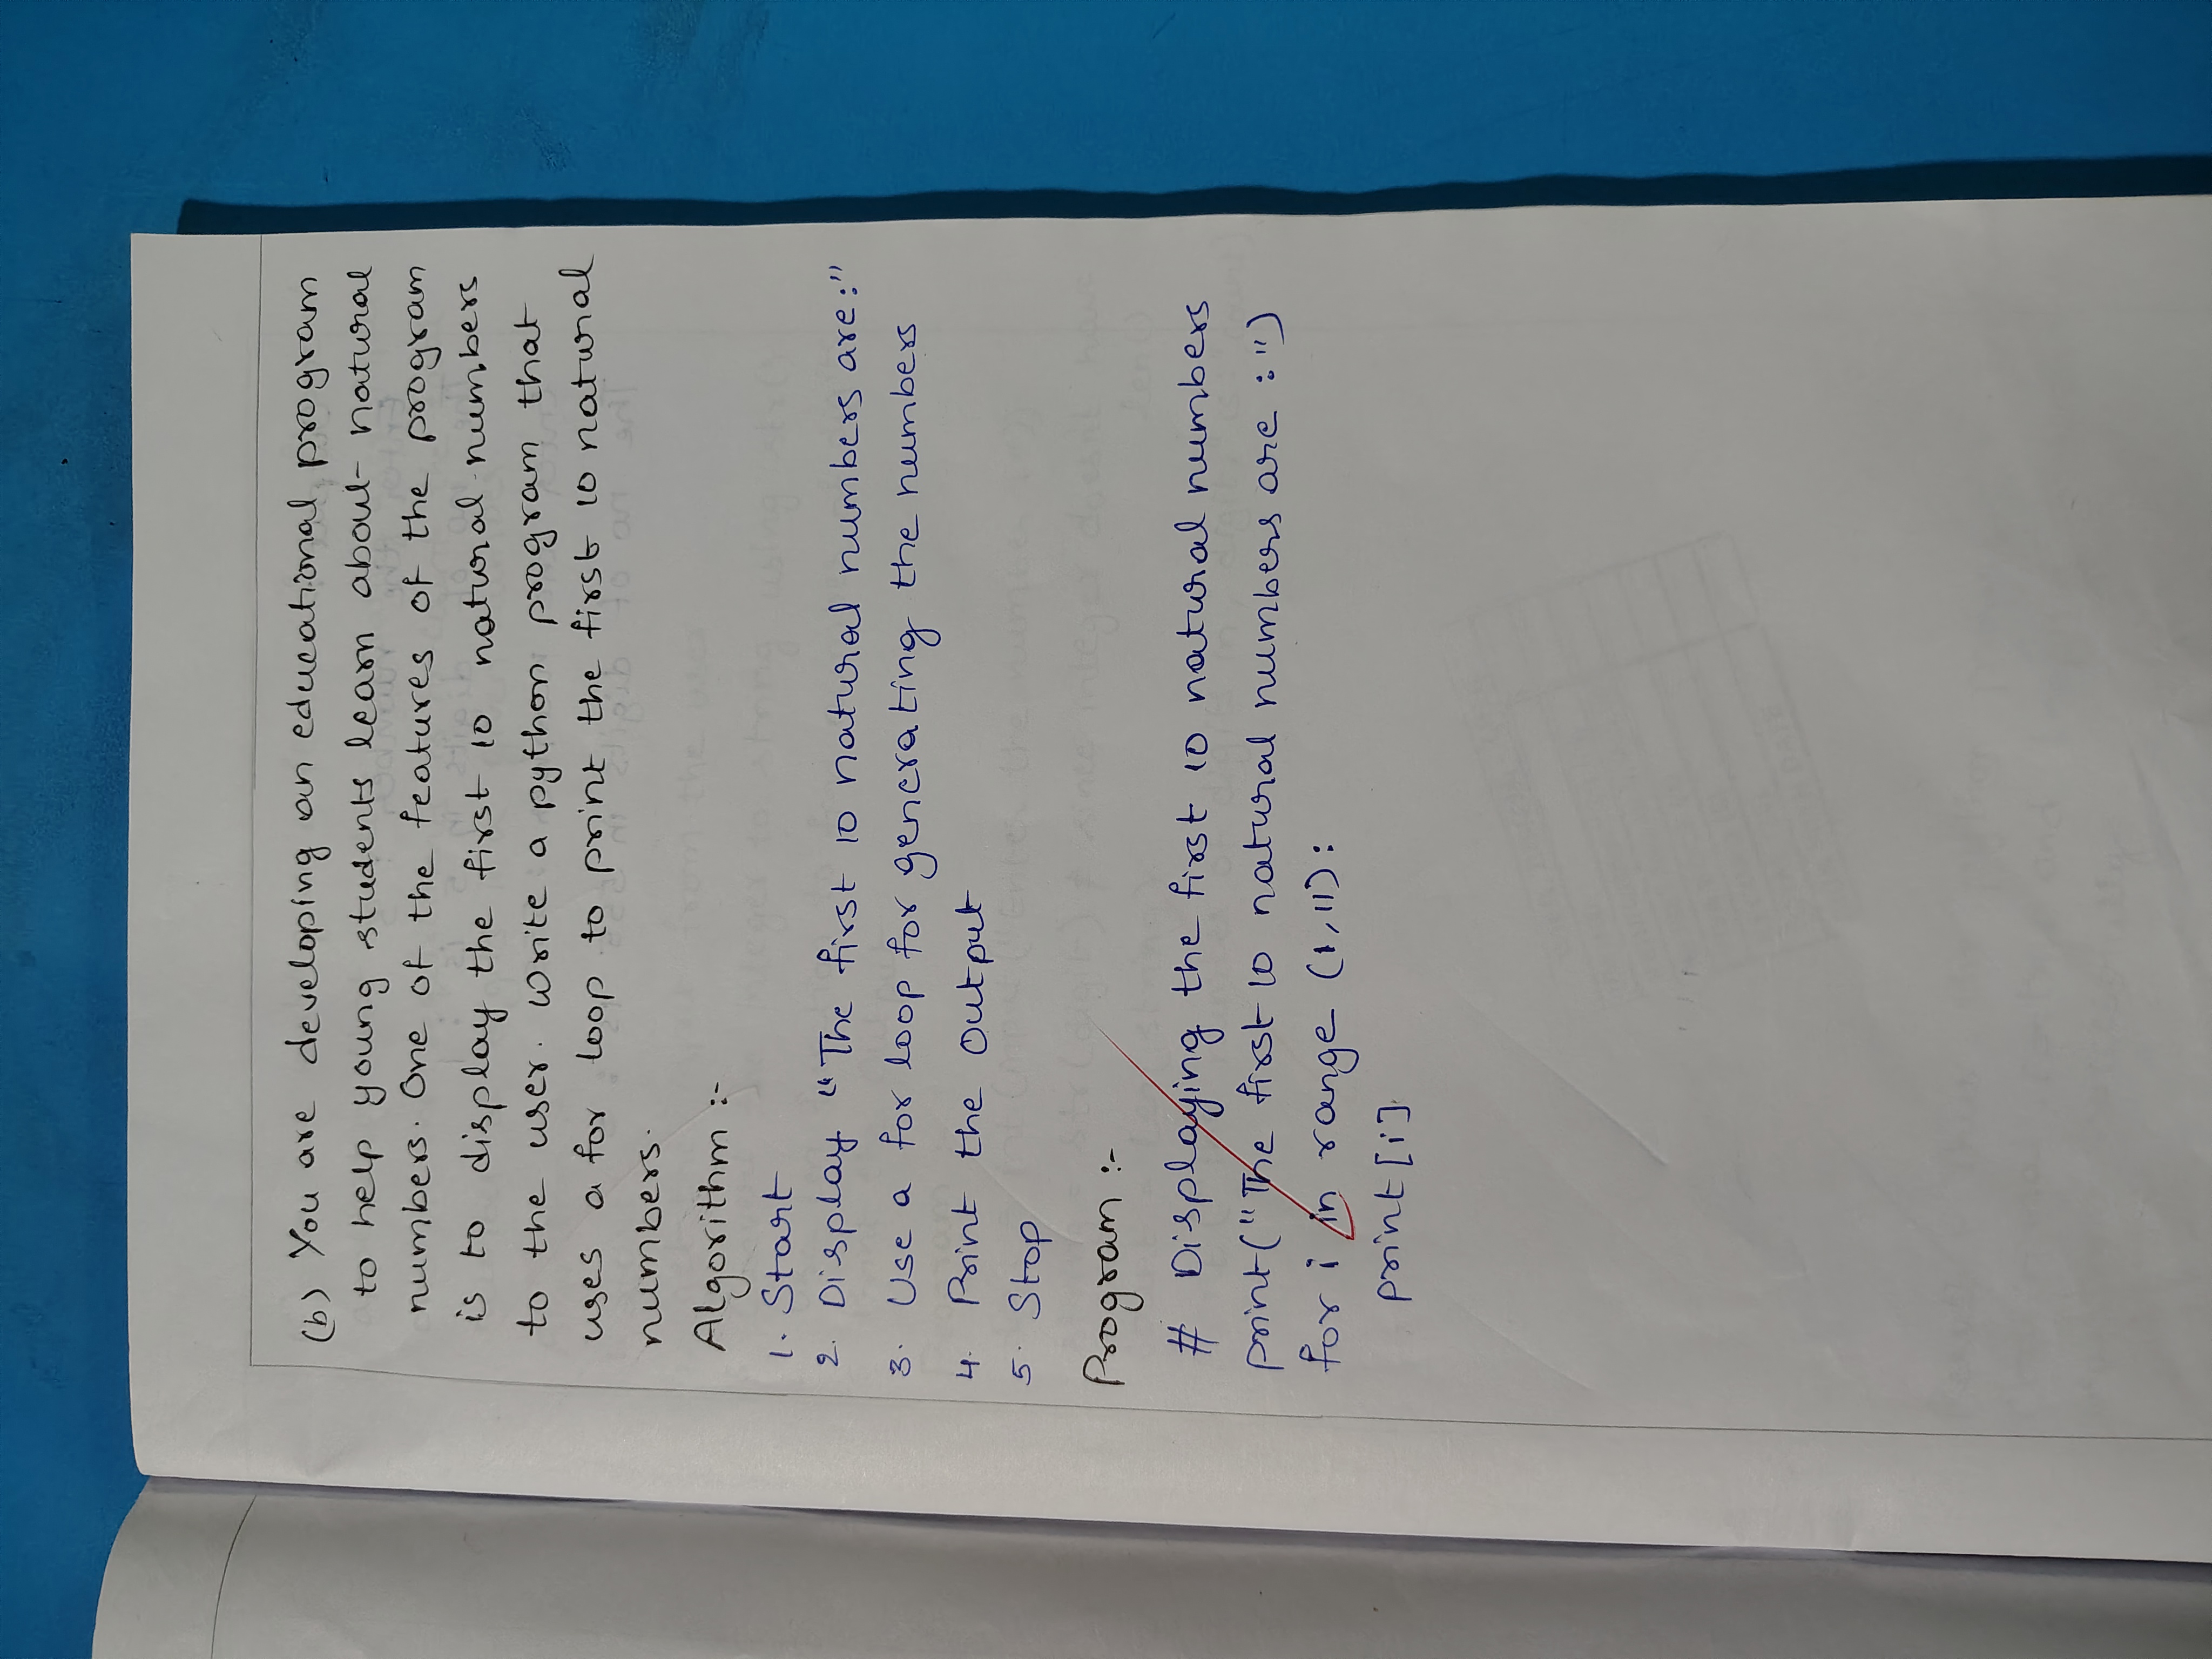 (b) You are developing an educational program
to help young students learn about natural
numbers. One of the features of the program
is to display the first 10 natural numbers
to the user. Write a python program that
uses a for loop to print the first 10 natural
numbers.
Algorithm :-
1. Start
2. Display "The first 10 natural numbers are:"
3. Use a for loop for generating the numbers
4. Print the output
5. Stop
Program :-
# Displaying the first 10 natural numbers
print("The first 10 natural numbers are :")
for i in range (1,11):
print[i]